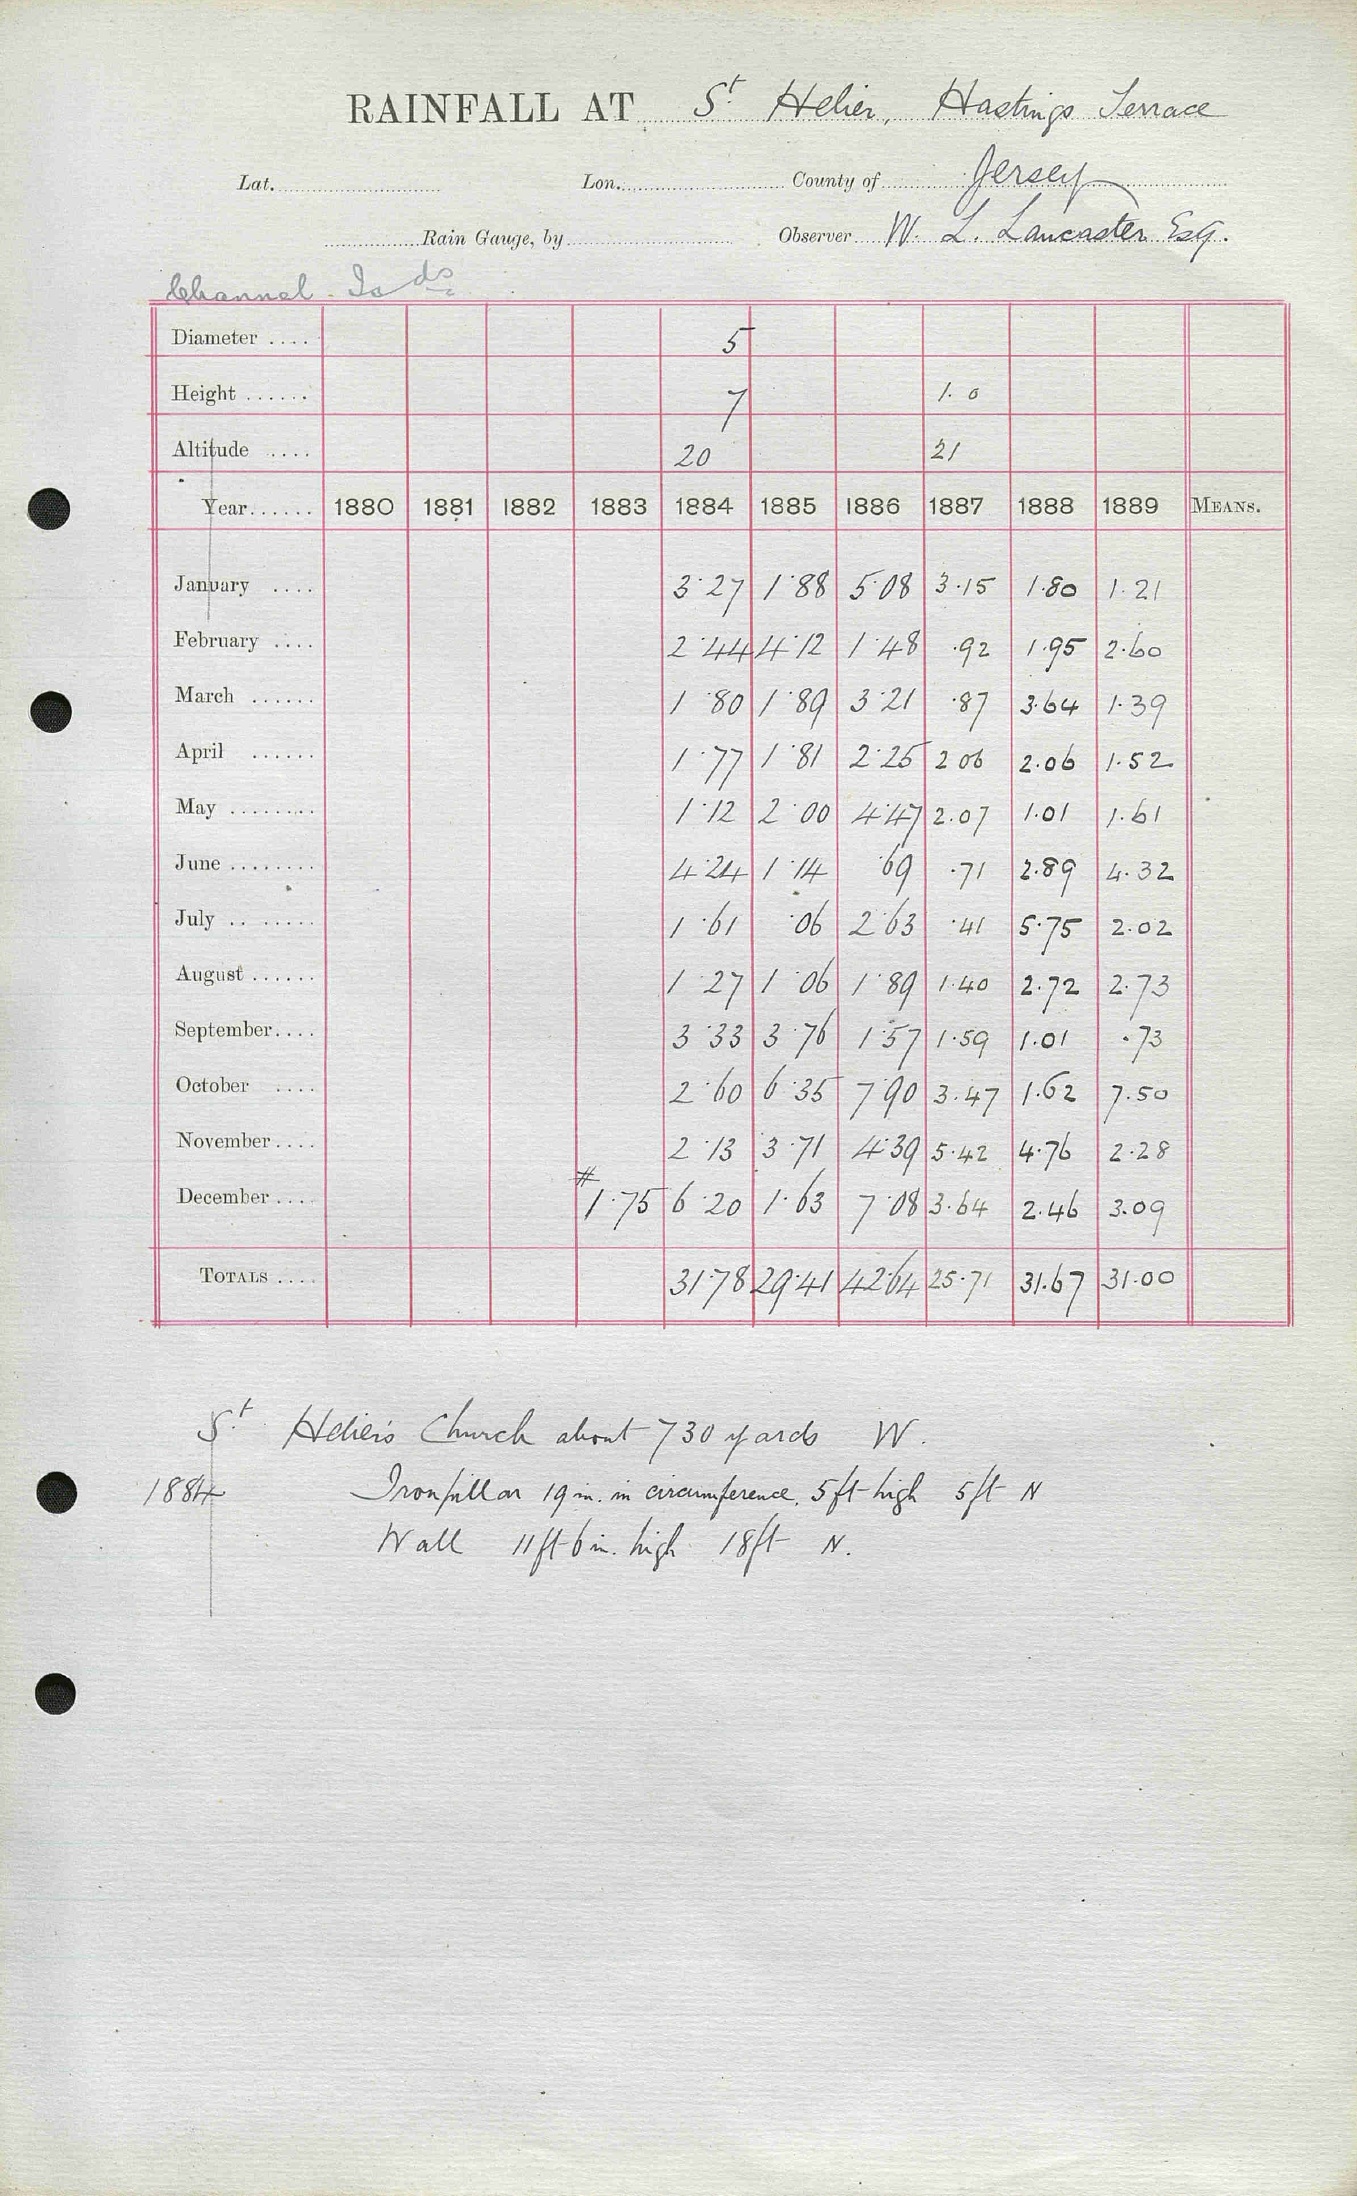 RAINFALL AT St. Helier, Hastings Terrace
Lat. Lon. County of Jersey
Rain Gauge, by Observer W. L. Lancaster Esq.
Channel Is ds
Diameter .... 5
Height ...... 7 1.0
Altitude .... 20 21
Year...... 1880 1881 1882 1883 1884 1885 1886 1887 1888 1889 MEANS.
January .... 3.27 1.88 5.08 3.15 1.80 1.21
February .... 2.44 4.12 1.48 .92 1.95 2.60
March ...... 1.80 1.89 3.21 .87 3.64 1.39
April ...... 1.77 1.81 2.25 2 06 2.06 1.52
May ........ 1.12 2.00 4.47 2.07 1.01 1.61
June ........ 4.24 1.14 .69 .71 2.89 4.32
July ........ 1.61 .06 2.63 .41 5.75 2.02
August ...... 1.27 1.06 1.89 1.40 2.72 2.73
September.... 3.33 3.76 1.57 1.59 1.01 .73
October .... 2.60 6.35 7.90 3.47 1.62 7.50
November.... 2.13 3.71 4.39 5.42 4.76 2.28
December.... #1.75 6.20 1.63 7.08 3.64 2.46 3.09
TOTALS .... 31.78 29.41 42.64 25.71 31.67 31.00
St. Helier's Church about 730 yards W.
1884 Iron pillar 19 in. in circumference, 5ft high 5ft N
Wall 11ft 6 in. high 18ft N.